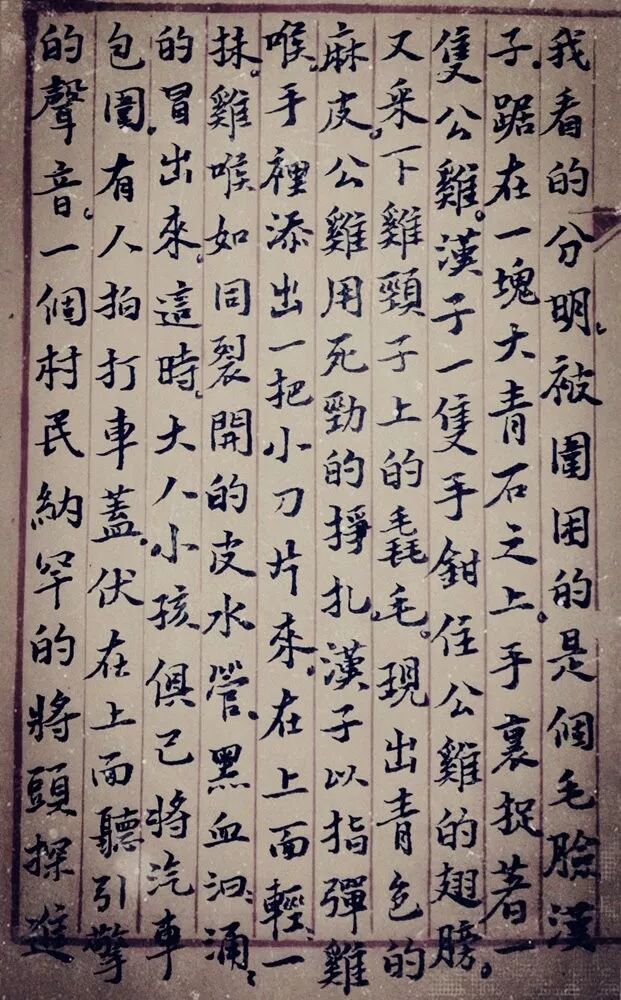 我看的分明。被圍困的是個毛臉漢
子。踞在一塊大青石之上。手裏捉著一
隻公雞。漢子一隻手鉗住公雞的翅膀。
又采下雞頸子上的毳毛。現出青色的
麻皮。公雞用死勁的掙扎。漢子以指彈雞
喉。手裡添出一把小刀片來。在上面輕：一
抹。雞喉如同裂開的皮水管。黑血汩：涌：
的冒出來。這時。大人小孩俱已將汽車
包圍。有人拍打車蓋。伏在上面聽引擎
的聲音。一個村民納罕的將頭探進